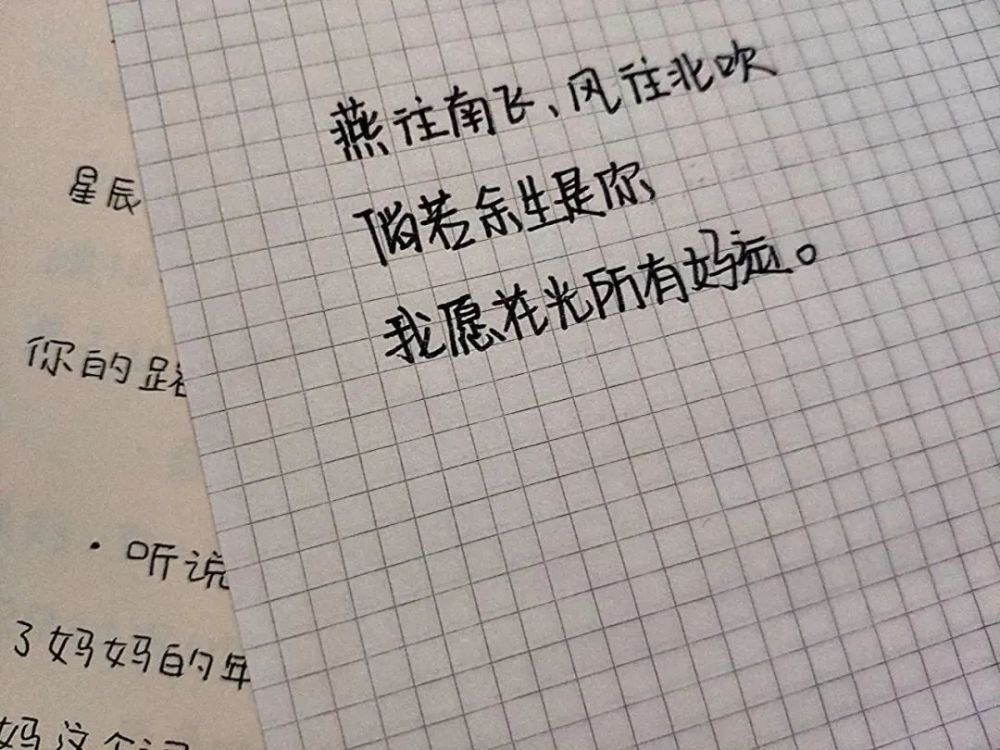 燕往南飞、风往北吹
倘若余生是你
我愿花光所有好运。
星辰
你的路
·听说
3妈妈的年
妈这个